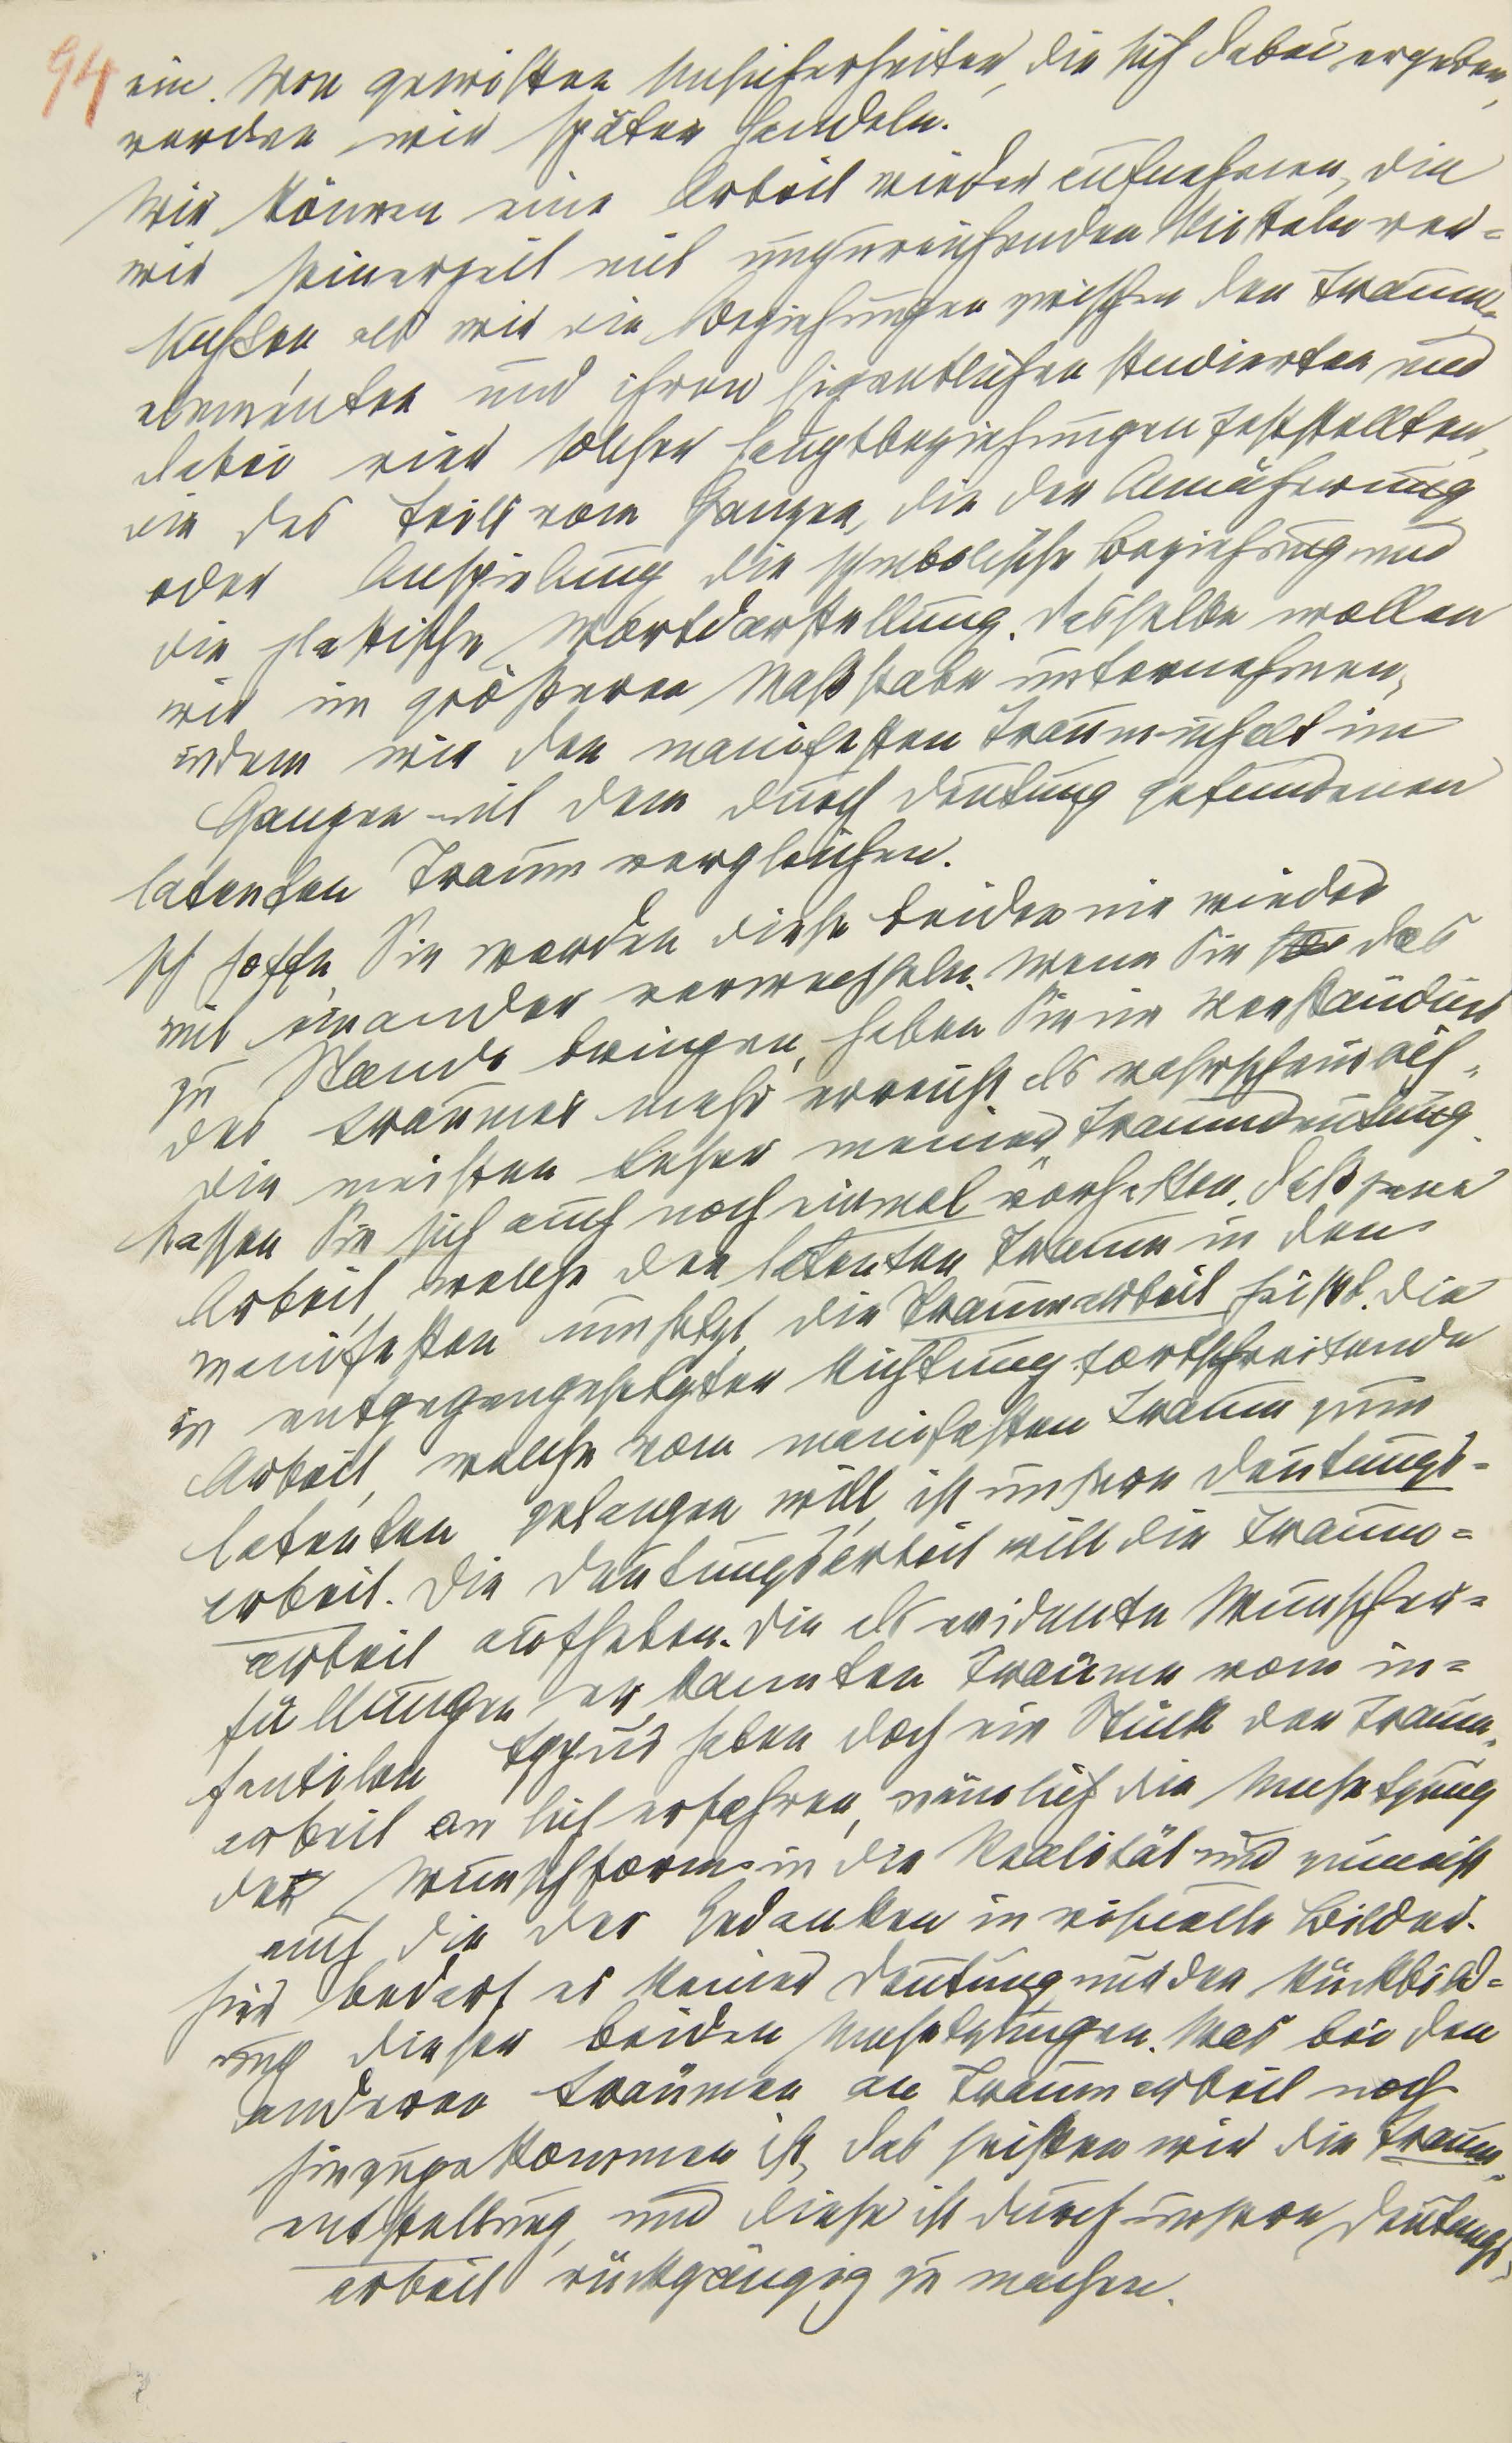 94
ein. Von gewissen Unsicherheiten, die sich dabei ergeben,
werden wir später handeln.
Wir können eine Arbeit wieder aufnehmen, die
wir seinerzeit mit unzureichenden Mitteln ver=
suchten, als wir die Beziehungen zwischen den Traum=
elementen und ihren Eigentlichen studierten und
dabei vier solcher Hauptbeziehungen feststellten,
die des Teils vom Ganzen, die der Annäherung
oder Anspielung, die symbolische Beziehung und
die plastische Wortdarstellung. Dasselbe wollen
wir im größeren Maßstabe unternehmen,
indem wir den manifesten Trauminhalt im
Ganzen mit dem durch Deutung gefundenen
latenten Traum vergleichen.
Ich hoffe, Sie werden diese beiden nie wieder
mit einander verwechseln. Wenn Sie das
zu Stande bringen, haben Sie im Verständnis
des Traumes mehr erreicht als wahrscheinlich
die meisten Leser meiner Traumdeutung.
Lassen Sie sich auch noch einmal vorhalten, daß jene
Arbeit, welche den latenten Traum in den
manifesten umsetzt, die Traumarbeit heißt. Die
in entgegengesetzter Richtung fortschreitende
Arbeit, welche vom manifesten Traum zum
latenten gelangen will, ist unsere Deutungs=
arbeit. Die Deutungsarbeit will die Traum=
arbeit aufheben. Die als evidente Wunscher=
füllungen erkannten Träume vom in=
fantilen Typus haben doch ein Stück der Traum=
arbeit an sich erfahren, nämlich die Umsetzung
der Wunschform in die Realität und zumeist
auch die der Gedanken in visuelle Bilder.
Hier bedarf es keiner Deutung, nur der Rückbild=
ung dieser beiden Umsetzungen. Was bei den
anderen Träumen an Traumarbeit noch
hinzugekommen ist, das heißen wir die Traum=
entstellung, und diese ist durch unsere Deutungs=
arbeit rückgängig zu machen.